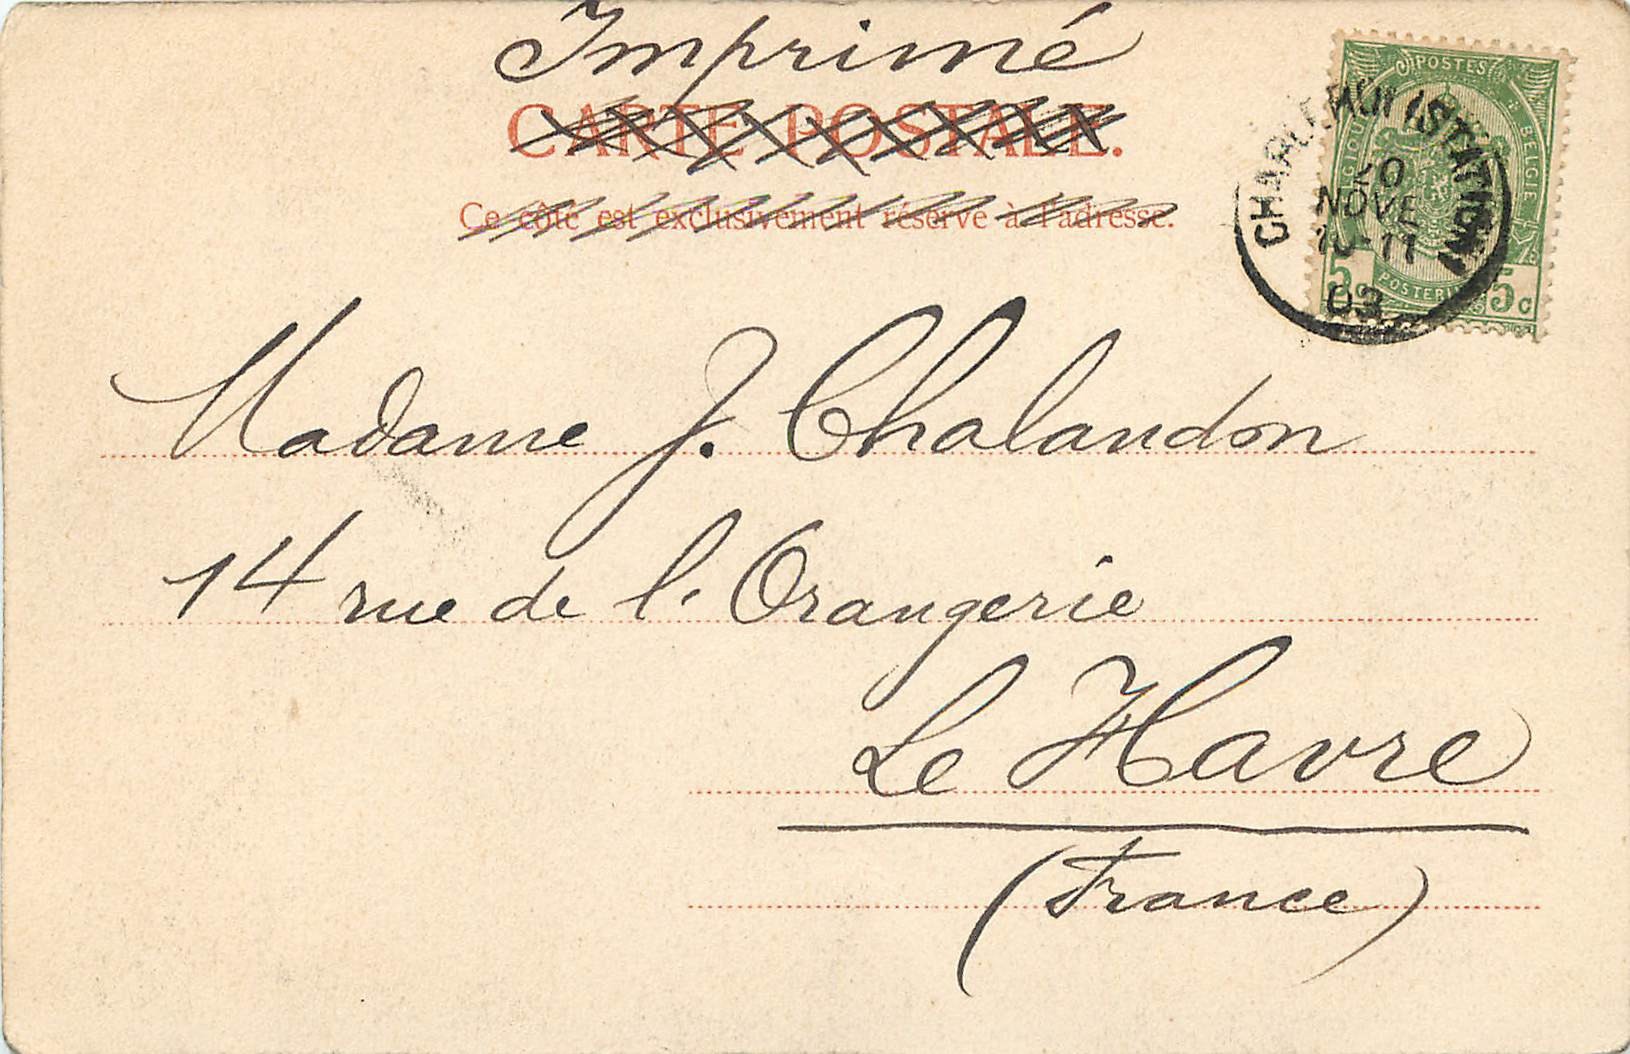 Imprimé
CARTE POSTALE.
Ce côté est exclusivement réservé à l'adresse.
POSTES
BELGIQUE
BELGIE
POSTERIJEN
5c 5c
CHARLEROI (STATION)
NOVE
10-11
03
Madame J. Chalandon
14 rue de l'Orangerie
Le Havre
(France)